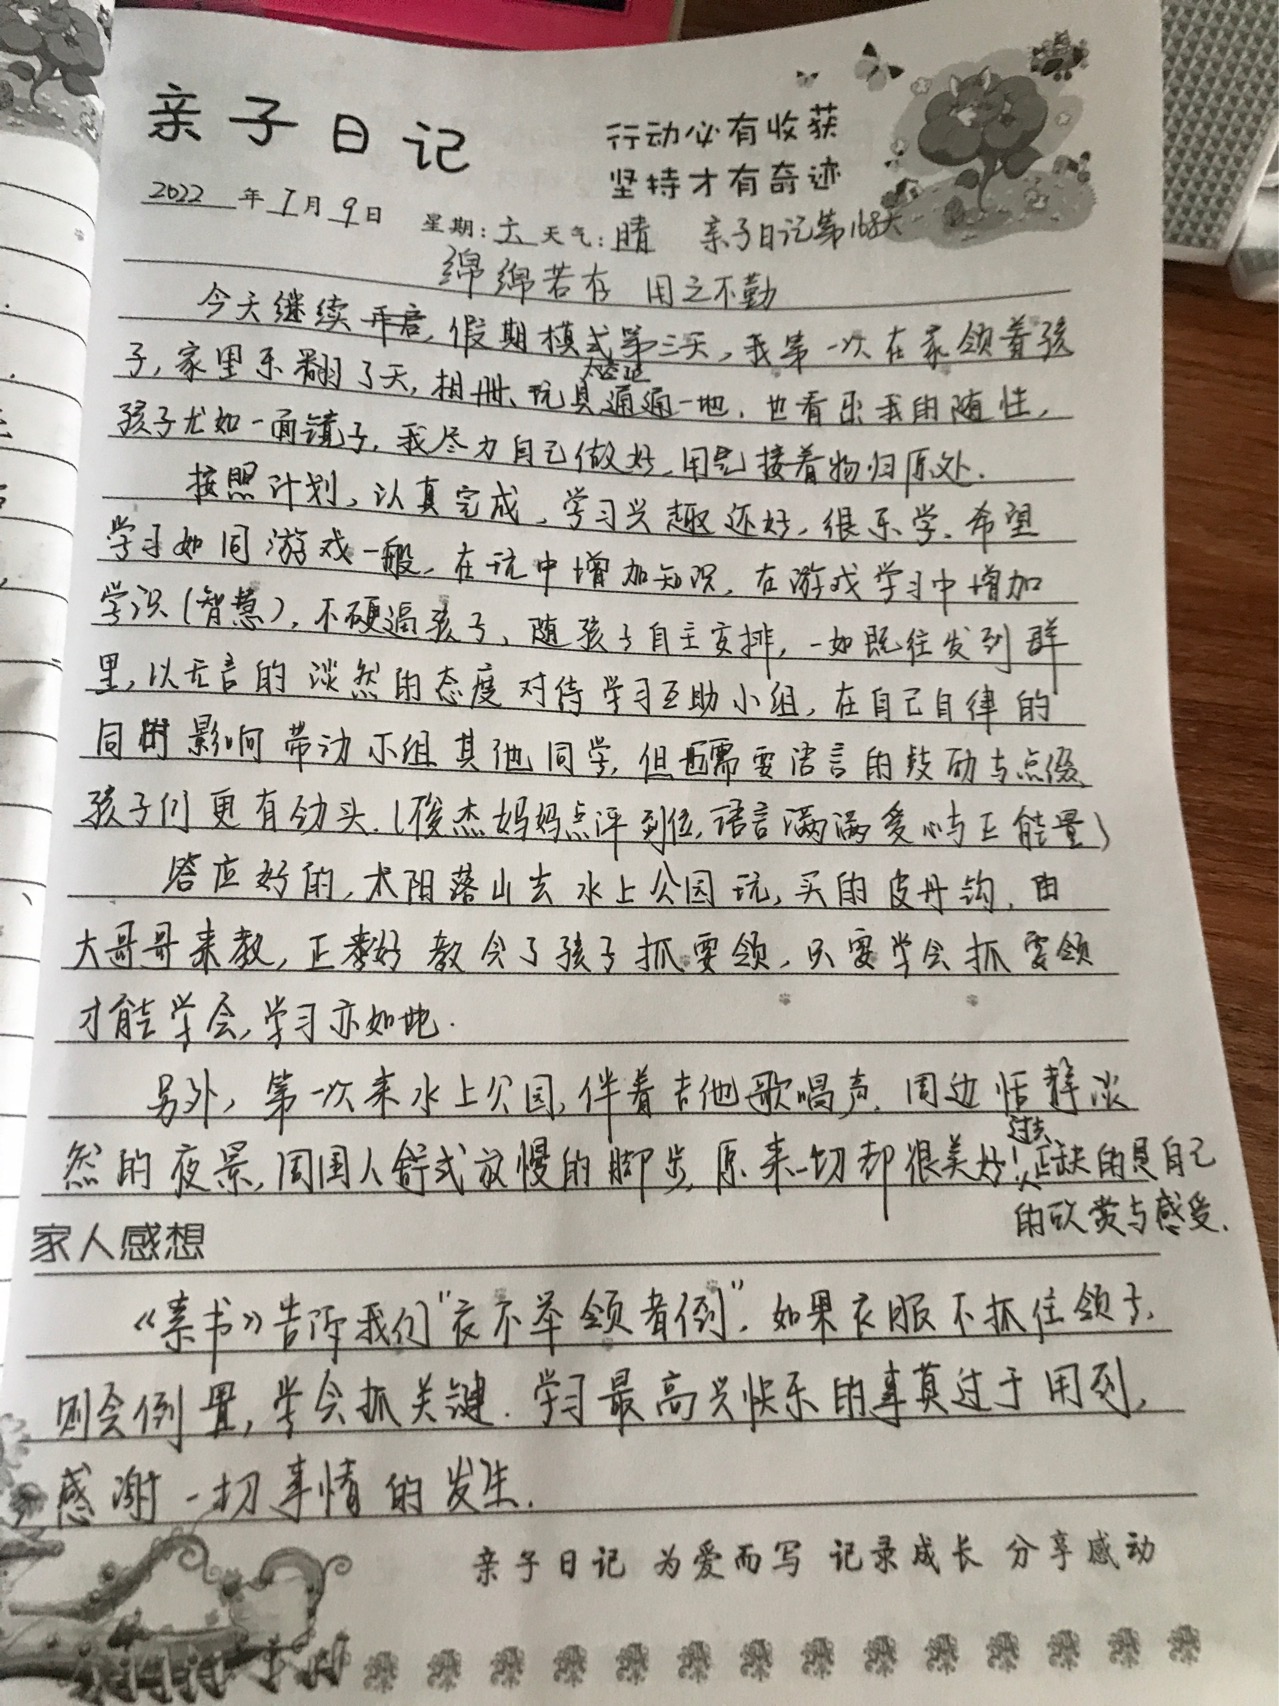 亲子日记
行动必有收获
坚持才有奇迹
2022年7月9日 星期:六 天气:晴 亲子日记第168天
绵绵若存 用之不勤
今天继续开启,假期模式第三天,我第一次在家领着孩
子,家里乐翻了天,相册、玩具通通一地,也看出我的随性,
孩子尤如一面镜子,我尽力自己做好,用完接着物归原处.
按照计划,认真完成,学习兴趣还好,很乐学.希望
学习如同游戏一般,在玩中增加知识,在游戏学习中增加
学识(智慧),不硬逼孩子,随孩子自主安排,一如既往发到群
里,以无言的淡然的态度对待学习互助小组,在自己自律的
同时影响带动小组其他同学,但也需要语言的鼓励与点缀
孩子们更有劲头.(俊杰妈妈点评到位,语言满满爱心与正能量)
答应好的,太阳落山去水上公园玩,买的皮丹钩,由
大哥哥来教,正好教会了孩子抓要领,只要学会抓要领
才能学会,学习亦如此.
另外,第一次来水上公园,伴着吉他歌唱声,周边恬静淡
然的夜景,周围人舒式放慢的脚步,原来一切都很美好!过去只缺的是自己
的欣赏与感受.
家人感想
《素书》告诉我们"衣不举领者倒",如果衣服不抓住领子,
则会倒置,学会抓关键.学习最高兴快乐的事莫过于用到,
感谢一切事情的发生.
亲子日记 为爱而写 记录成长 分享感动